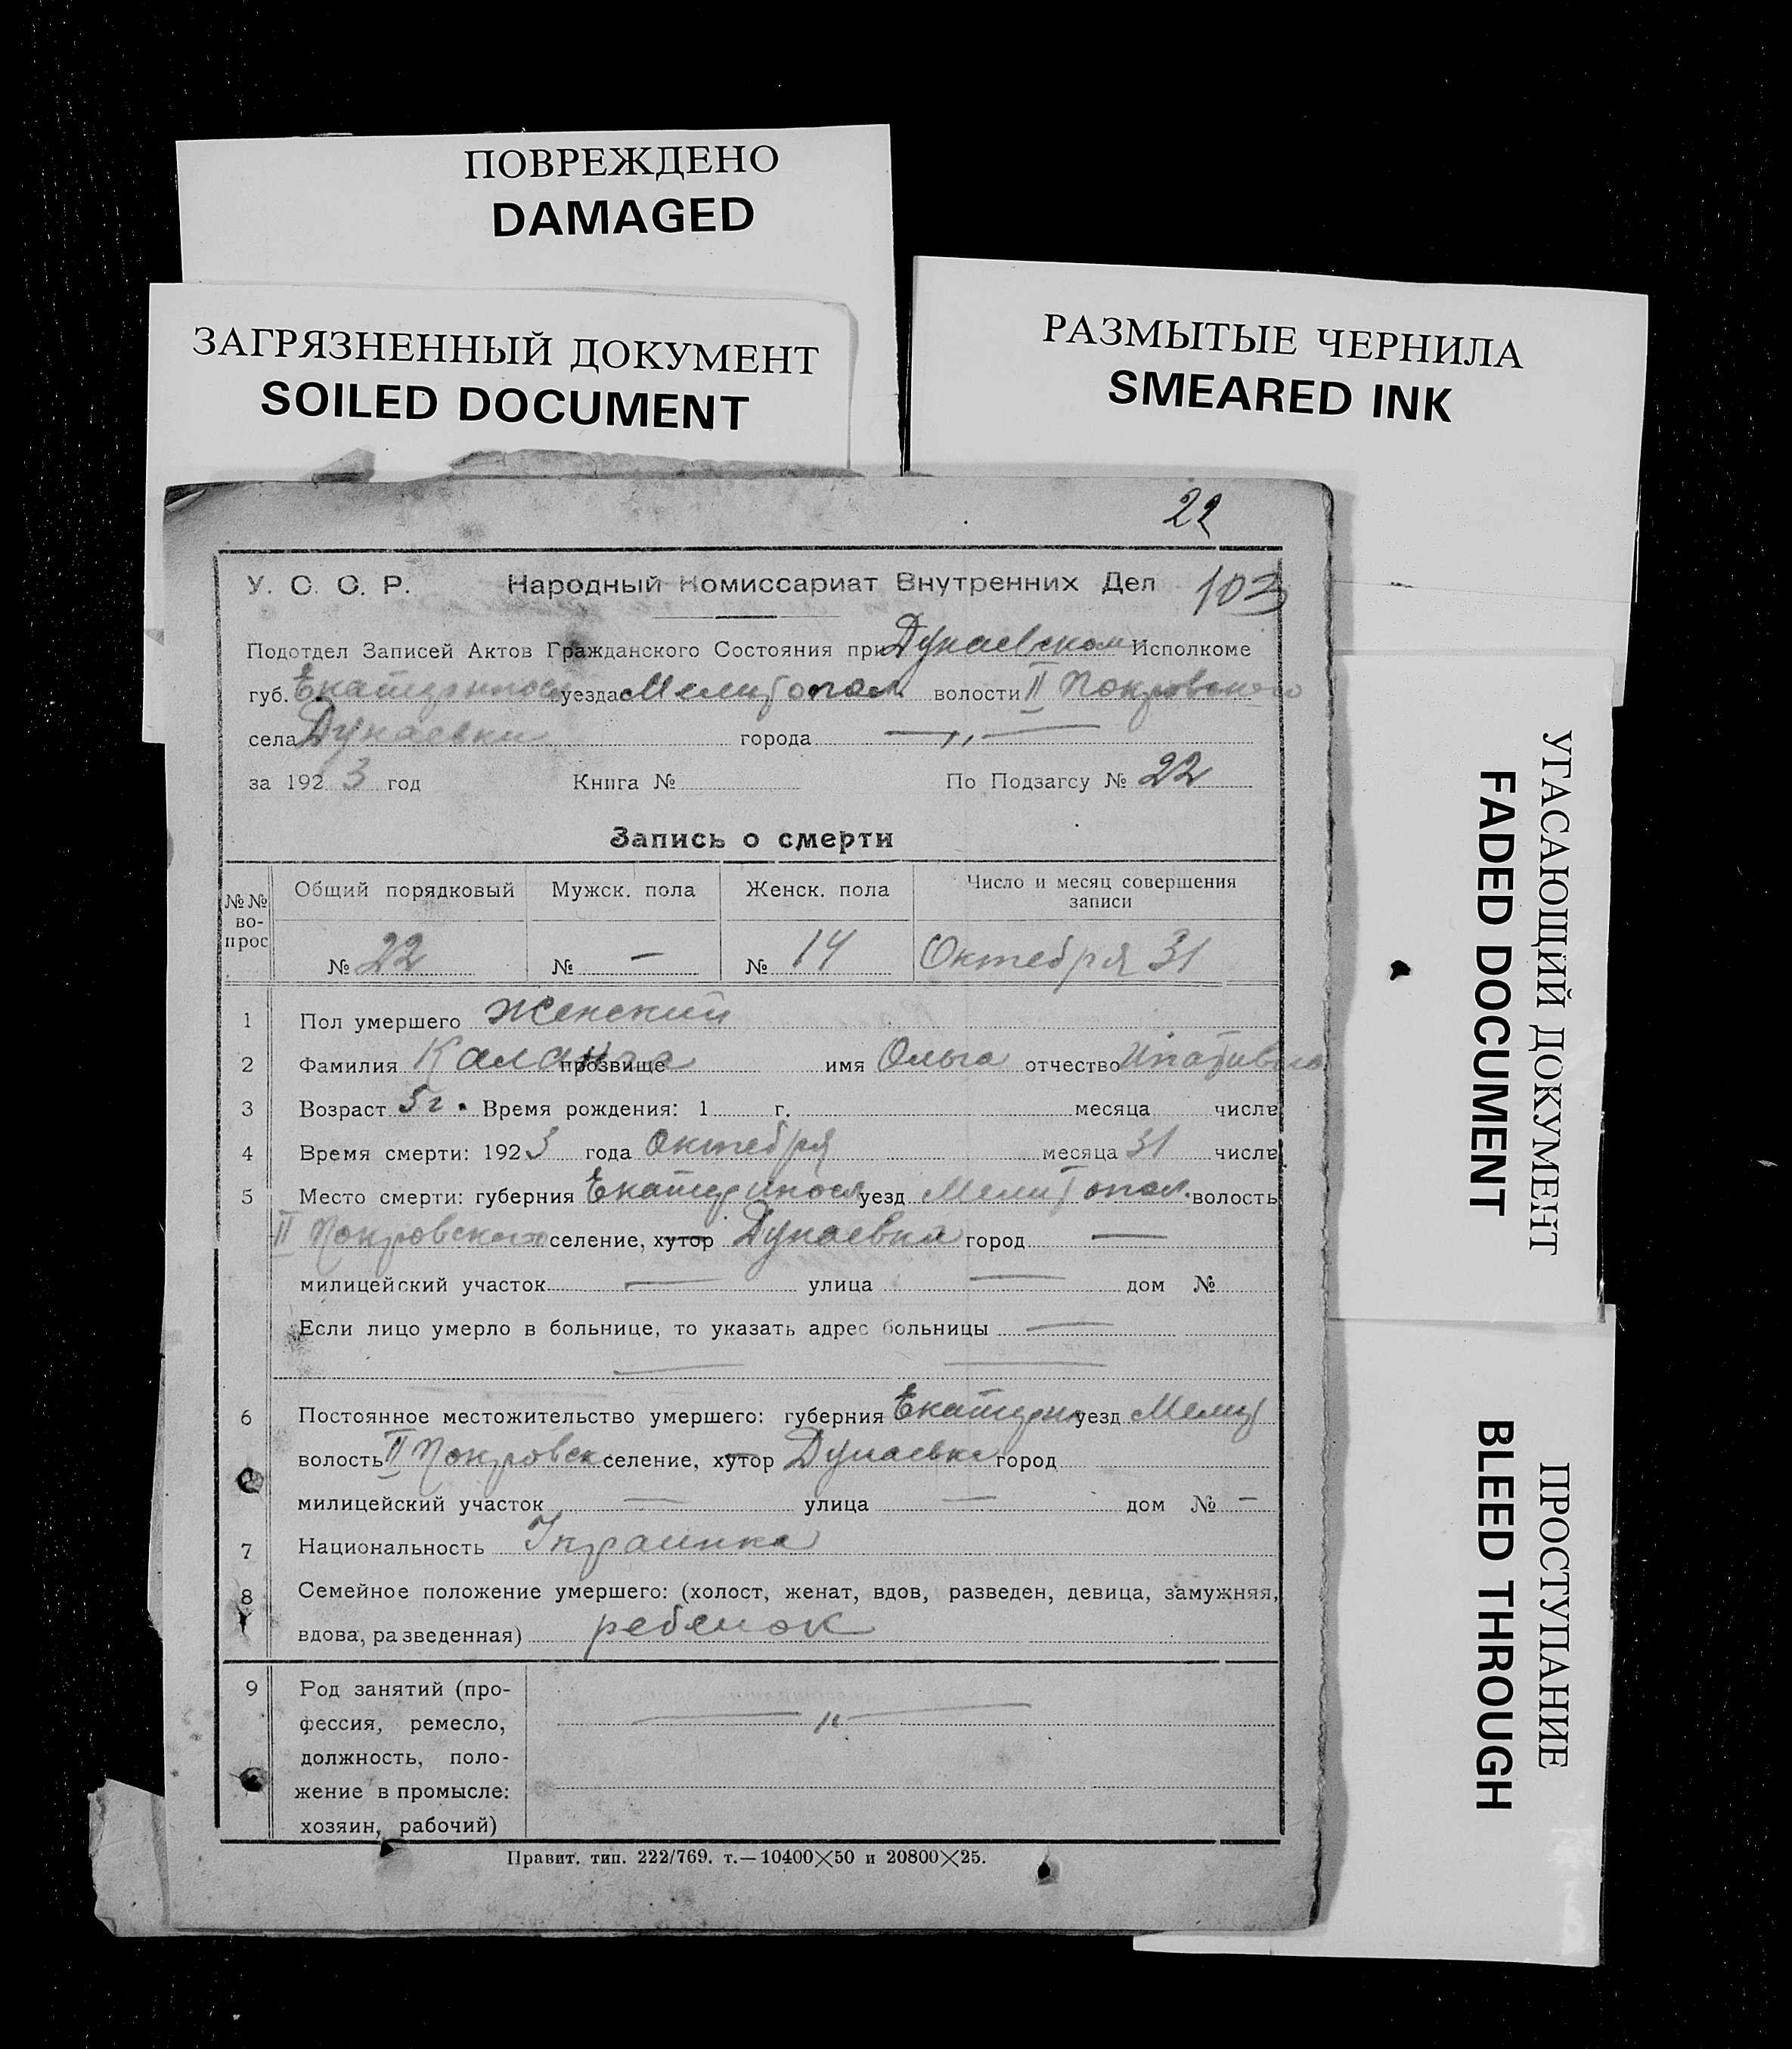 ПОВРЕЖДЕНО
DAMAGED
ЗАГРЯЗНЕННЫЙ ДОКУМЕНТ
SOILED DOCUMENT
РАЗМЫТЫЕ ЧЕРНИЛА
SMEARED INK
22
У. С. С. Р. Народный Комиссариат Внутренних Дел 103
Подотдел Записей Актов Гражданского Состояния при Дунаевском Исполкоме
губ. уезда Мелитопол. волости II Покровского
села Дунаевки города —„—
за 1923 год Книга № По Подзагсу № 22
Запись о смерти
№№ вопрос Общий порядковый Мужск. пола Женск. пола Число и месяц совершения записи
№ 22 № — № 14 Октября 31
1 Пол умершего Женский
2 Фамилия прозвище имя Ольга отчество
3 Возраст 5 г. Время рождения: 1 г. месяца числа
4 Время смерти: 1923 года Октября месяца 31 числа
5 Место смерти: губерния уезд Мелитопол. волость
II Покровского селение, хутор Дунаевка город —
милицейский участок — улица — дом №
Если лицо умерло в больнице, то указать адрес больницы —
— —
6 Постоянное местожительство умершего: губерния уезд Мелит
волость II Покровск селение, хутор Дунаевка город
милицейский участок — улица — дом № —
7 Национальность Украинка
8 Семейное положение умершего: (холост, женат, вдов, разведен, девица, замужняя,
вдова, разведенная) ребенок
9 Род занятий (про-
фессия, ремесло, —„—
должность, поло-
жение в промысле:
хозяин, рабочий)
Правит. тип. 222/769. т.—10400×50 и 20800×25.
УГАСАЮЩИЙ ДОКУМЕНТ
FADED DOCUMENT
ПРОСТУПАНИЕ
BLEED THROUGH